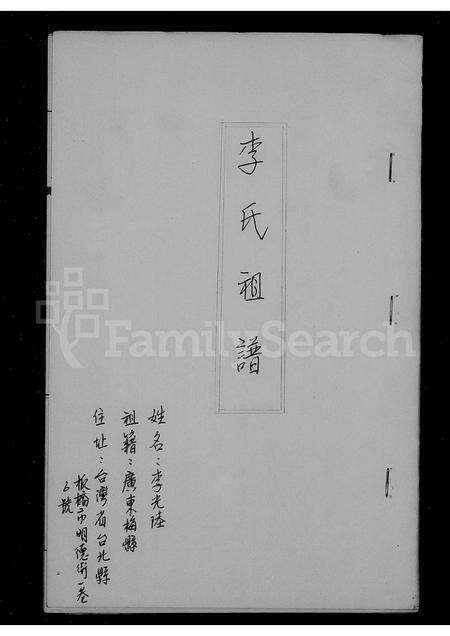 李氏祖譜
姓名：李光陸
祖籍：廣東梅縣
住址：台灣省台北縣
板橋市明德街一巷
6號
FamilySearch